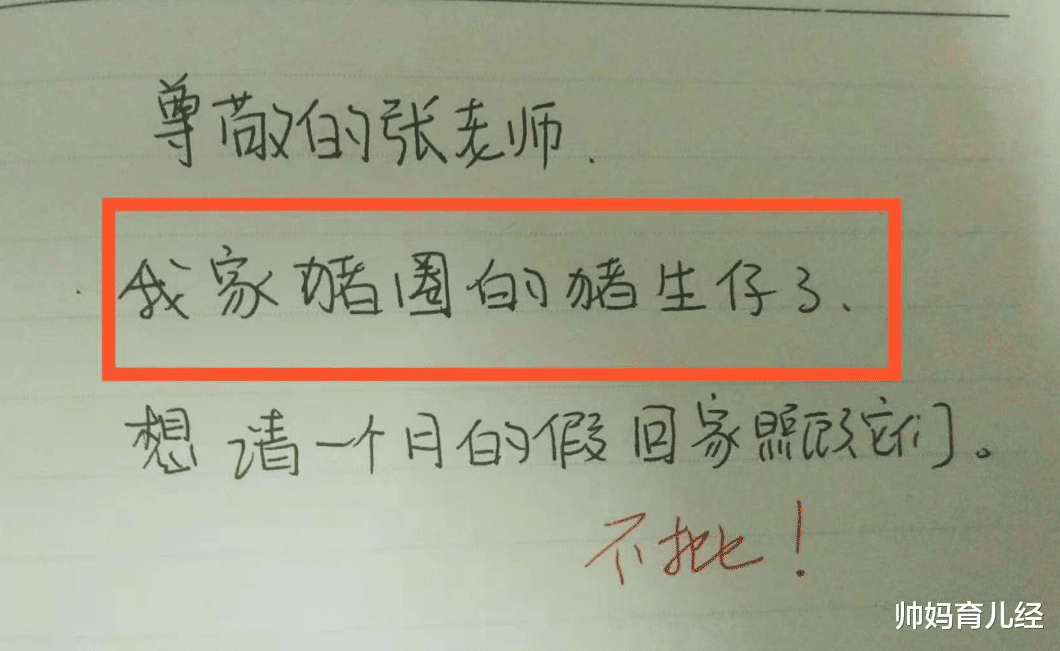 尊敬的张老师.
我家猪圈的猪生仔了、
想请一个月的假回家照顾它们。
不批！
帅妈育儿经